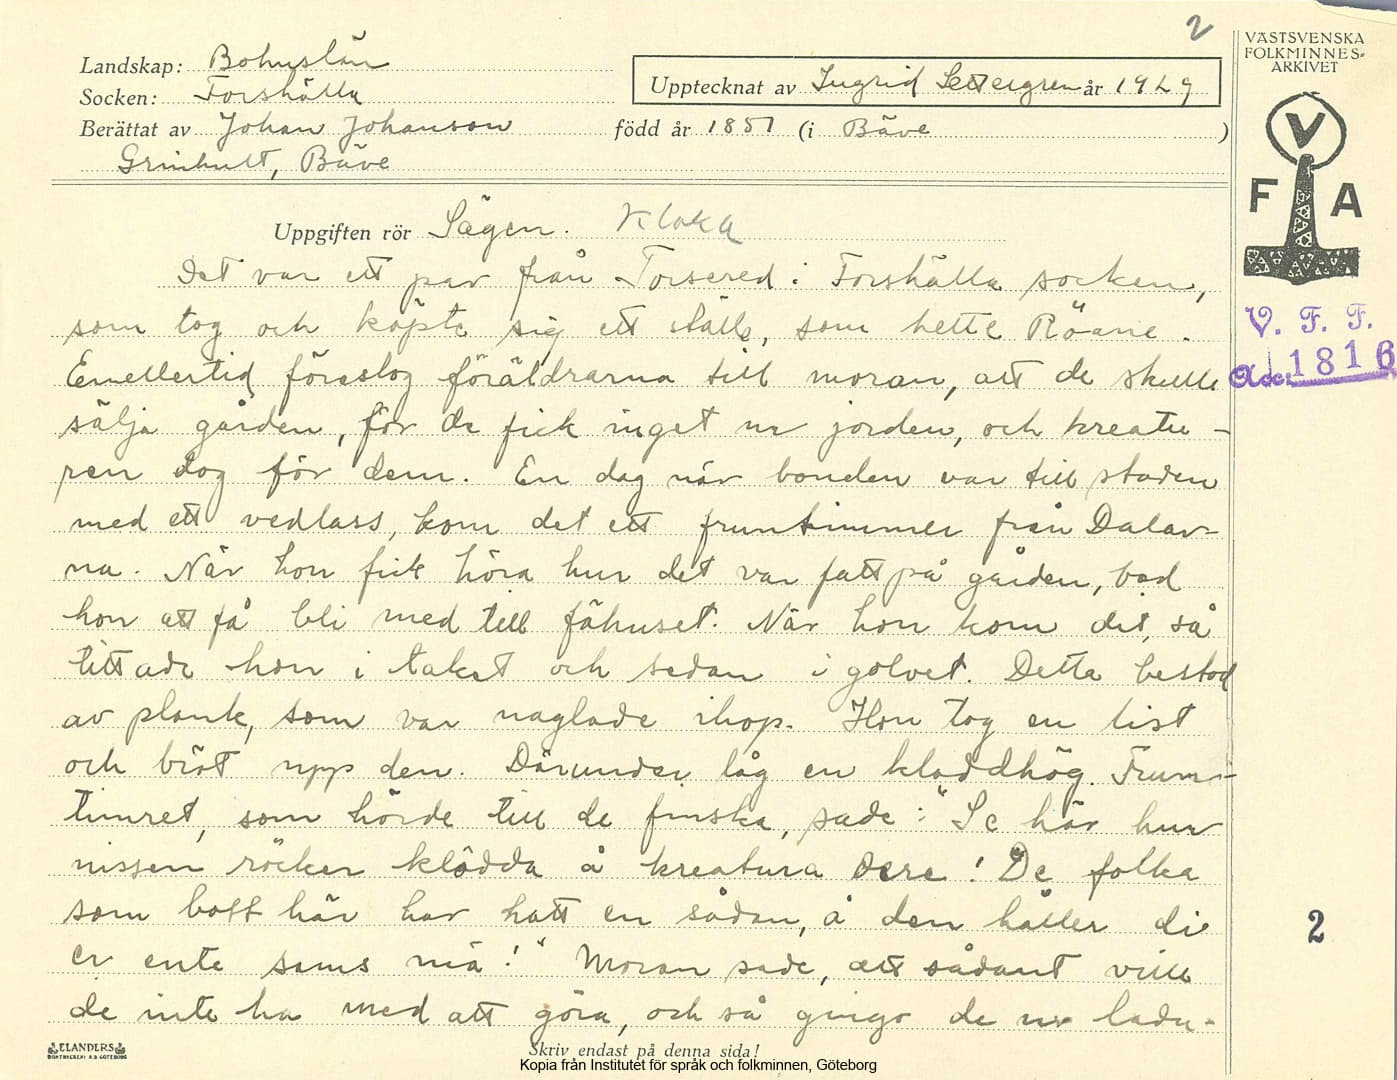 2
Landskap: Bohuslän
Socken: Forshälla
Upptecknat av Ingrid Settergren år 1929
Berättat av Johan Johanson född år 1857 (i Bäve )
Grinhult, Bäve
Uppgiften rör Sägen. Kloka
Det var ett par från Torsered i Forshälla socken,
som tog och köpte sig ett ställe, som hette Röane.
Emellertid föreslog föräldrarna till moran, att de skulle
sälja gården, för de fick inget ur jorden, och kreatu-
ren dog för dem. En dag när bonden var till staden
med ett vedlass, kom det ett fruntimmer från Dalar-
na. När hon fick höra hur det var fatt på gården, bad
hon att få bli med till fähuset. När hon kom dit, så
tittade hon i taket och sedan i golvet. Detta bestod
av plank, som var naglade ihop. Hon tog en list
och bröt upp den. Därunder låg en kladdhög. Frun-
timret, som hörde till de finska, sade: "Se här hur
nissen röcker klödda å kreatura dere! De folka
som bott här har hatt en sådan, å den håller di
er ente sams mä!" Moran sade, att sådant ville
de inte ha med att göra, och så gingo de ur ladu-
ELANDERS
BOKTRYCKERI A.B. GÖTEBORG
Skriv endast på denna sida!
Kopia från Institutet för språk och folkminnen, Göteborg
VÄSTSVENSKA
FOLKMINNES-
ARKIVET
V
F A
V. F. F.
Acc: 1816
2